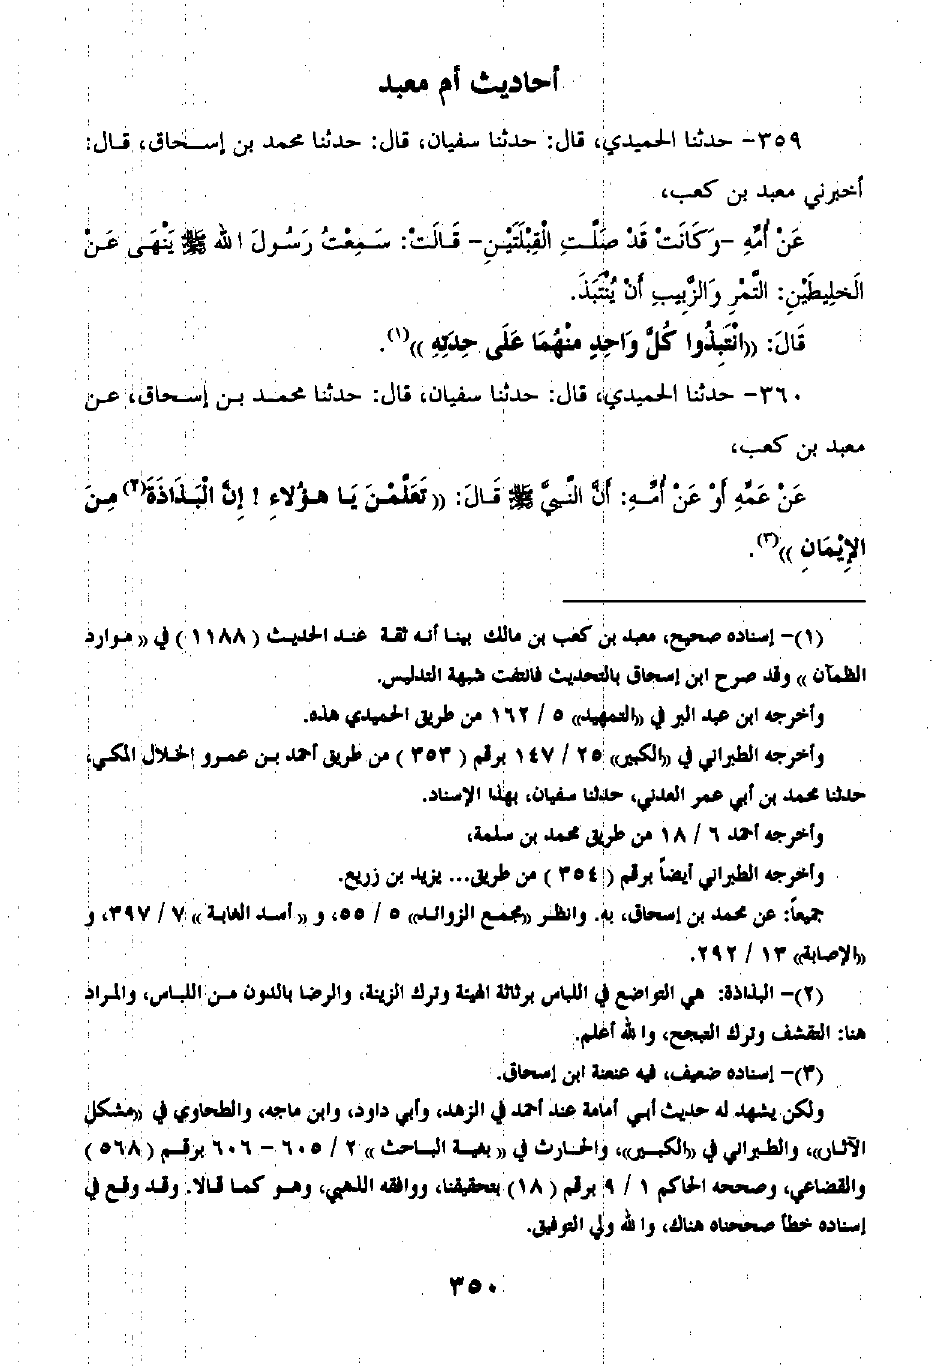 أحاديث أم معبد
٣٥٩- حدثنا الحميدي، قال: حدثنا سفيان، قال: حدثنا محمد بن إسحاق، قال:
أخبرني معبد بن كعب،
عَنْ أُمِّهِ -وَكَانَتْ قَدْ صَلَّتِ الْقِبْلَتَيْنِ- قَالَتْ: سَمِعْتُ رَسُولَ اللهِ ﷺ يَنْهَى عَنْ
الْخَلِيطَيْنِ: التَّمْرِ وَالزَّبِيبِ أَنْ يُنْتَبَذَ.
قَالَ: ((انْتَبِذُوا كُلَّ وَاحِدٍ مِنْهُمَا عَلَى حِدَتِهِ ))(١).
٣٦٠- حدثنا الحميدي، قال: حدثنا سفيان، قال: حدثنا محمد بن إسحاق، عن
معبد بن كعب،
عَنْ عَمِّهِ أَوْ عَنْ أُمِّهِ: أَنَّ النَّبِيَّ ﷺ قَالَ: (( تَعَلَّمْنَ يَا هَؤُلاَءِ ! إِنَّ الْبَذَاذَةَ(٢) مِنَ
الإِيْمَانِ ))(٣).
(١)- إسناده صحيح، معبد بن كعب بن مالك بينا أنه ثقة عند الحديث ( ١١٨٨ ) في (( موارد
الظمآن )) وقد صرح ابن إسحاق بالتحديث فانتفت شبهة التدليس.
وأخرجه ابن عبد البر في ((التمهيد)) ٥ / ١٦٢ من طريق الحميدي هذه.
وأخرجه الطبراني في ((الكبير)) ٢٥ / ١٤٧ برقم ( ٣٥٣ ) من طريق أحمد بن عمرو الخلال المكي،
حدثنا محمد بن أبي عمر العدني، حدثنا سفيان، بهذا الإسناد.
وأخرجه أحمد ٦ / ١٨ من طريق محمد بن سلمة،
وأخرجه الطبراني أيضاً برقم ( ٣٥٤ ) من طريق... يزيد بن زريع.
جميعاً: عن محمد بن إسحاق، به. وانظر ((مجمع الزوائد)) ٥ / ٥٥، و (( أسد الغابة )) ٧ / ٣٩٧، و
((الإصابة)) ١٣ / ٢٩٢.
(٢)- البذاذة: هي التواضع في اللباس برثاثة الهيئة وترك الزينة، والرضا بالدون من اللباس، والمراد
هنا: التقشف وترك التبجح، والله أعلم.
(٣)- إسناده ضعيف، فيه عنعنة ابن إسحاق.
ولكن يشهد له حديث أبي أمامة عند أحمد في الزهد، وأبي داود، وابن ماجه، والطحاوي في ((مشكل
الآثار))، والطبراني في ((الكبير))، والحارث في (( بغية الباحث )) ٢ / ٦٠٥ - ٦٠٦ برقم ( ٥٦٨ )
والقضاعي، وصححه الحاكم ١ / ٩ برقم ( ١٨ ) بتحقيقنا، ووافقه الذهبي، وهو كما قالا. وقد وقع في
إسناده خطأ صححناه هناك، والله ولي التوفيق.
٣٥٠